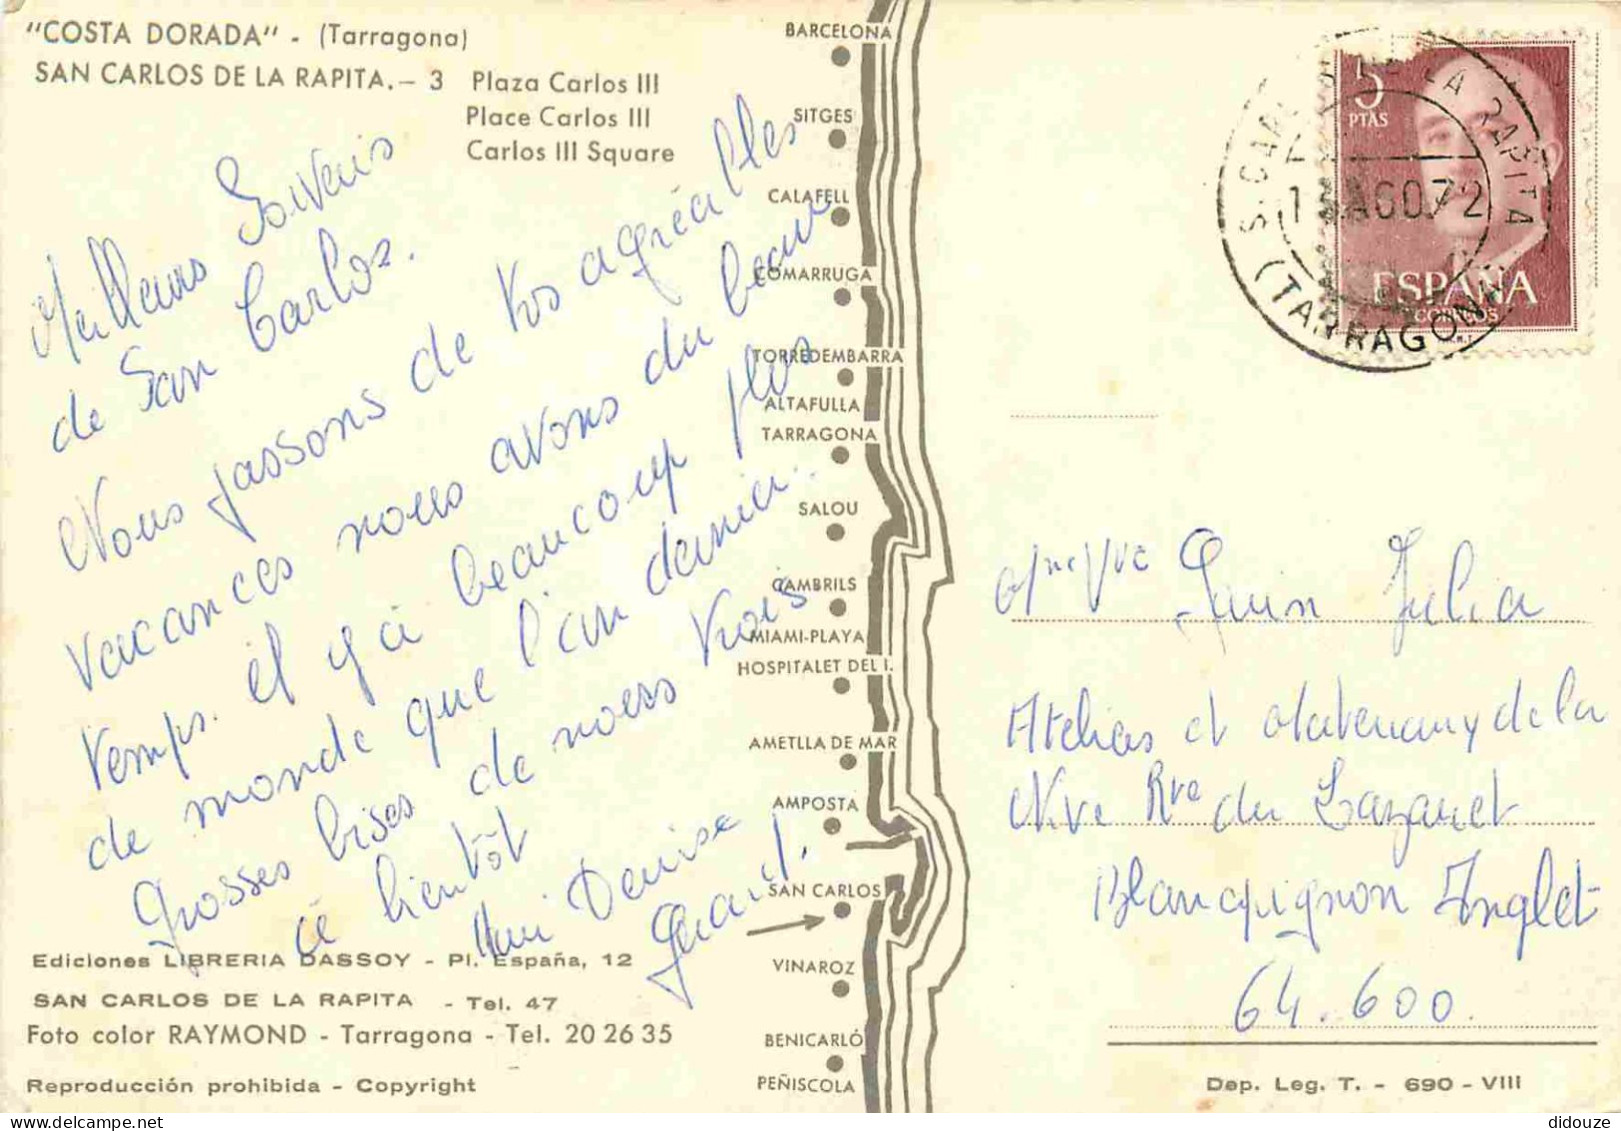 "COSTA DORADA" - (Tarragona)
SAN CARLOS DE LA RAPITA. - 3 Plaza Carlos III
Place Carlos III
Carlos III Square
Meilleurs Sovenis
de San Carlos.
Nous passons de tos agréalles
vacances nous avons du beau
temps. il y a beaucoup plus
de monde que l'an dernier.
Grosses bises de nous trois
à bientôt
Denise
Gérard.
Ediciones LIBRERIA DASSOY - Pl. España, 12
SAN CARLOS DE LA RAPITA - Tel. 47
Foto color RAYMOND - Tarragona - Tel. 20 26 35
Reproducción prohibida - Copyright
BARCELONA
SITGES
CALAFELL
COMARRUGA
TORREDEMBARRA
ALTAFULLA
TARRAGONA
SALOU
CAMBRILS
MIAMI-PLAYA
HOSPITALET DEL I.
AMETLLA DE MAR
AMPOSTA
SAN CARLOS
VINAROZ
BENICARLÓ
PEÑISCOLA
5
PTAS
ESPAÑA
CORREOS
LA RAPITA
AGO.72
(TARRAGONA)
Mme Vve Julia
Atelias et de la
Nve Rve du Lazaret
Blancpignon Anglet
64.600.
Dep. Leg. T. - 690 - VIII
didouze